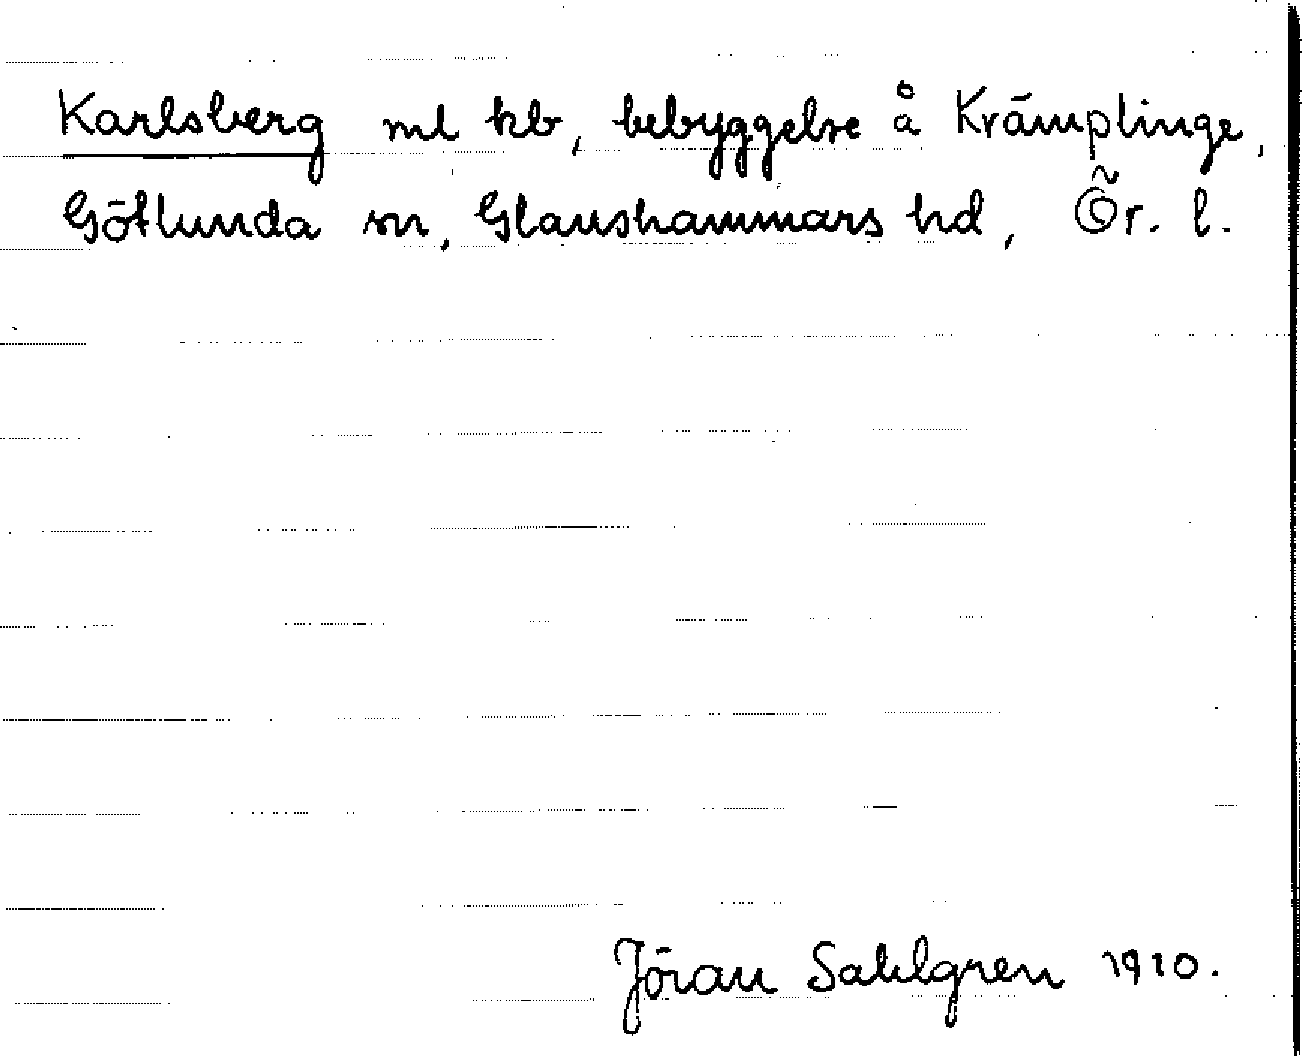 Karlsberg ml kb, bebyggelse å Krämplinge,
Götlunda sn, Glanshammars hd, Ör. l.
Jöran Sahlgren 1910.